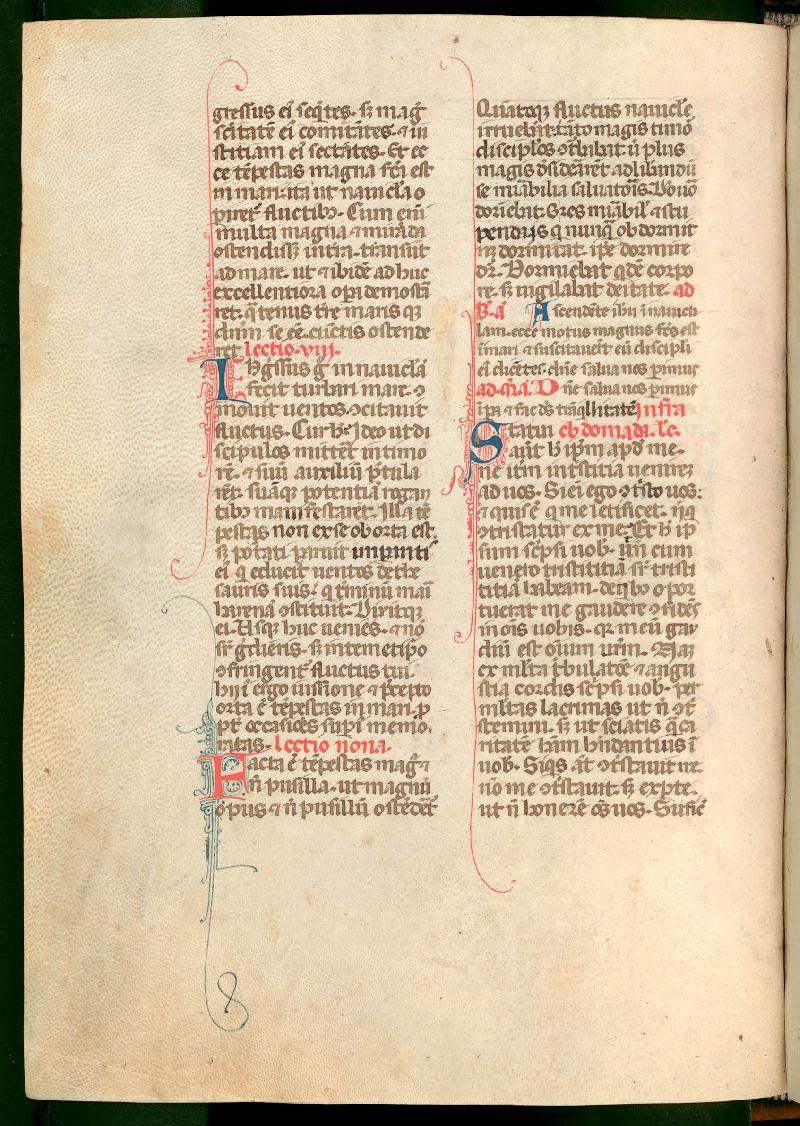 gressus ei seq̄tes. sꝫ mag̃
sc̄itatē ei comitātes. ⁊ iu
stitiam ei sectātes. Et ec
ce tēpestas magna fc̄a est
in mari. ita ut nauicl̄a o
piret᷑ fluctibꝫ. Cum eni᷑
multa magna ⁊ mirāda
ostendissꝫ in t̄ra. transiit
ad mare. ut ⁊ ibidē ad huc
excellentiora oꝑa demostᷓ
ret. q̄tenus tr̄e maris qꝫ
dn̄m se eē. cūctis ostende
ret. lectio .viii.
Ingressus g̊ in nauicl̄a
fecit turbari mare. ꝯ
mouit uentos. ꝯcitauit
fluctus. Cur hꝫ? Ideo ut di
scipulos mittet᷑ in timo
rē. ⁊ suū auxiliū p̄tula
rēt. suāqꝫ potentiā rogan
tibꝫ manifestaret. Illa tē
pestas non ex se oborta est.
sꝫ potati paruit imꝑāti᷑
ei᷑ q̇ educit uentos de the
sauris suis. q̇ t᷑minū mari
harenā ꝯstituit. Dixitqꝫ
ei. Usqꝫ huc uenies. ⁊ nō
tn̄ g̃dieris. sꝫ in temetip̄o
ꝯfringent᷑ fluctus tui.
hui᷑ ergo iussione ⁊ p̄cepto
orta ē tēpestas in mari. ꝓ
pt᷑ occasiōes suꝑi᷑ memo
ratas. lectio nona.
Facta ē tēpestas mag᷑ ⁊
n̄ pusilla. ut magnū
opus ⁊ n̄ pusillū ostēdet᷑
Quātoqꝫ fluctus nauicl̄e
irruebāt. tāto magis timor
discipl̄os ꝯt᷑babat. ut plus
magis d̄sidearēt. ad libandū
se mirabilia saluatoris. Ip̄e uo
dormiebat. O res mirabil᷑ ⁊ stu
pendas. q̇ nunq̄ obdormit
nꝫ dormitat. ip̄e dormire
dr̄. Dormiebat q̇dē corpo
re. sꝫ uigilabat deitate. ad
b̄. a᷑ Ascendēte ih̄u in nauicl̄
lam. ecce motus magnus fc̄s est
ī mari. ⁊ suscitauert̄ eū discipli
ei᷑ dicētes. dn̄e salua nos ꝑimus
ad m̄. a᷑. Dn̄e salua nos ꝑimus
īꝑa ⁊ fac ds̄ tᷓnq̇llitatē. infra
ebdomada. lc̄.
Statui
aūt h̄ ip̄m apd̄ me.
ne itm̄ in tristitia uenirēz
ad uos. Si eni᷑ ego ꝯtristo uos:
⁊ quis ē q̇ me letificet. nisi
ꝯtristatur ex me? Et h̄ ip̄
sum sc̄psi uob᷑. ut n̄ cum
uenero tristitiā sr̄ tristi
titiā habeam. de q̇bꝫ opor
tuerat me gaudere ꝯfidēs
in oīs uobis. qꝛ meū gau
diū est oīum ur̄m. Naꝫ
ex ml̄ta tribulatōe ⁊ angu
stia cordis sc̄psi uob᷑. ꝑ
ml̄tas lacrimas. ut n̄ ꝯtᷓ
stemini. sꝫ ut sciatis q̄ ca
ritatē hām habūdantius ī
uob᷑. Siqs aūt ꝯtristauit me.
nō me ꝯtristauit. sꝫ ex pte.
ut n̄ honerē oēs uos. Sufic̄